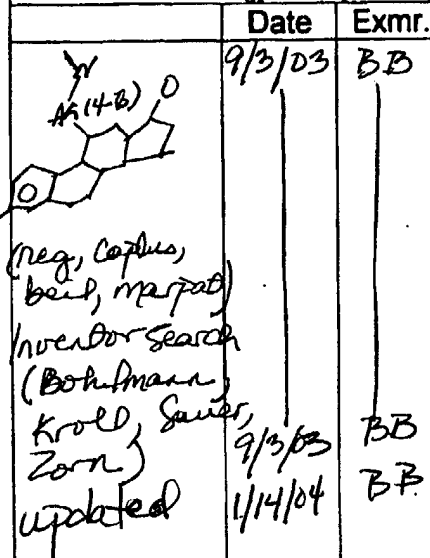 Date Exmr.
9/3/03 BB
N
Ar (4-B) O
O
(reg, caplus,
beil, marpat)
Inventor Search
(Bohlmann,
Kroll, Sauer,
Zorn) 9/3/03 BB
updated 1/14/04 BB